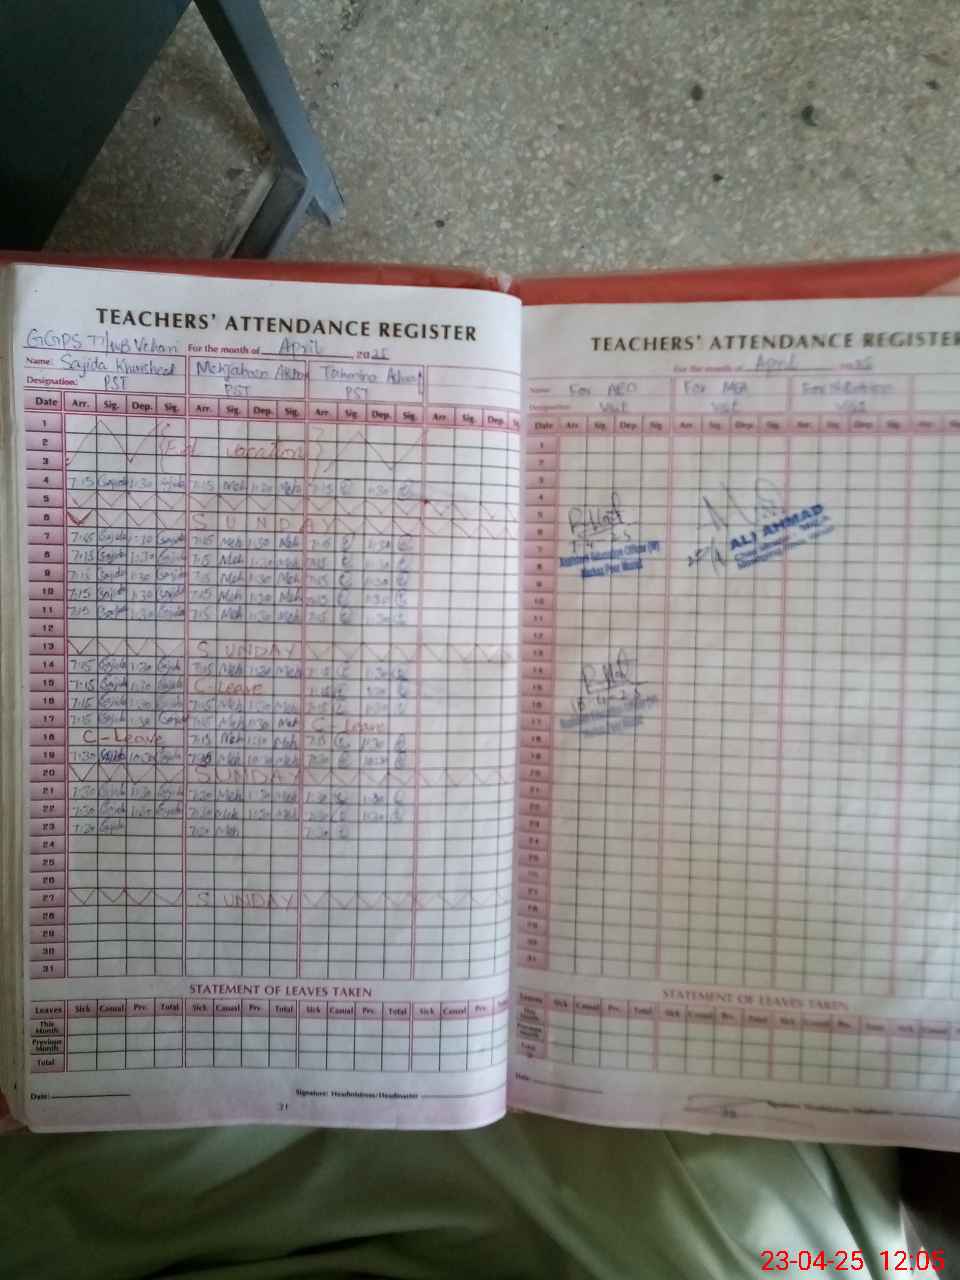 TEACHERS' ATTENDANCE REGISTER
For the month of April 2025
Name: Sajida Khursheed Mehjabeen
Designation: PST PST PST
Date Arr. Sig. Dep. Sig. Arr. Sig. Dep. Sig. Arr. Sig. Dep. Sig. Arr. Sig. Dep.
1
2 Eid vacation
3
4 7:15 Sajida 1:30 Sajida 7:15 Meh 1:30 Meh 7:15 1:30
5
6 SUNDAY
7 7:15 Sajida 1:30 Sajida 7:15 Meh 1:30 Meh 7:15 1:30
8 7:15 Sajida 1:30 Sajida 7:15 Meh 1:30 Meh 7:15 1:30
9 7:15 Sajida 1:30 Sajida 7:15 Meh 1:30 Meh 7:15 1:30
10 7:15 Sajida 1:30 Sajida 7:15 Meh 1:30 Meh 7:15 1:30
11 7:15 Sajida 1:30 Sajida 7:15 Meh 1:30 Meh 7:15 1:30
12
13 SUNDAY
14 7:15 Sajida 1:30 Sajida 7:15 Meh 1:30 Meh 7:15 1:30
15 7:15 Sajida 1:30 Sajida C-Leave 7:15 1:30
16 7:15 Sajida 1:30 Sajida 7:15 Meh 1:30 Meh 7:15 1:30
17 7:15 Sajida 1:30 Sajida 7:15 Meh 1:30 Meh C-Leave
18 C-Leave 7:15 Meh 1:30 Meh 7:15 1:30
19 7:30 Sajida 10:30 Sajida Meh 10:30 Meh 7:30 10:30
20 SUNDAY
21 7:30 Sajida 1:30 Sajida 7:30 Meh 1:30 Meh 7:30 1:30
22 7:30 Sajida 1:30 Sajida 7:30 Meh 1:30 Meh 7:30 1:30
23 7:30 Sajida 7:30 Meh 7:30
24
25
26
27 SUNDAY
28
29
30
31
STATEMENT OF LEAVES TAKEN
Leaves Sick Casual Prv. Total Sick Casual Prv. Total Sick Casual Prv. Total Sick Casual Prv.
This Month
Previous Month
Total
Date: Signature: Headmistress/Headmaster
31
TEACHERS' ATTENDANCE REGISTER
For the month of April 2025
Name For AEO For MEA
Designation visit visit visit
Date Arr. Sig. Dep. Sig. Arr. Sig. Dep. Sig. Arr. Sig. Dep. Sig.
1
2
3
4
5
6
7
8
9
10
11
12
13
14
15
16
17
18
19
20
21
22
23
24
25
26
27
28
29
30
31
ALI AHMAD
STATEMENT OF LEAVES TAKEN
Leaves Sick Casual Prv. Total Sick Casual Prv. Total Sick Casual Prv. Total Sick Casual
This Month
Previous Month
Total
Date:
23-04-25 12:05